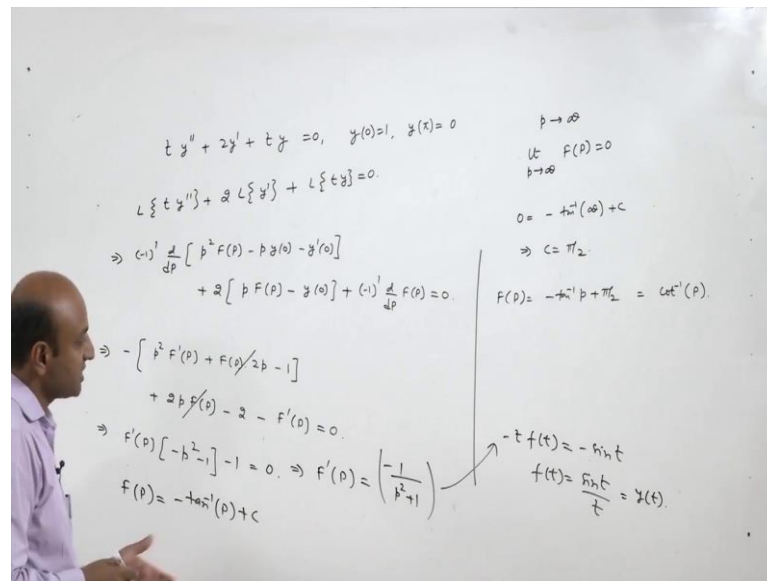 t y" + 2y' + t y = 0, y(0)=1, y(π)= 0
L{t y"} + 2 L{y'} + L{t y} = 0.
⇒ (-1)' d/dp [p² F(p) - p y(0) - y'(0)]
+ 2 [p F(p) - y(0)] + (-1)' d/dp F(p) = 0.
⇒ - [p² F'(p) + F(p) 2p - 1]
+ 2p F(p) - 2 - F'(p) = 0.
⇒ F'(p) [-p² -1] - 1 = 0. ⇒ F'(p) = (-1/(p²+1))
F(p) = -tan⁻¹(p) + c
p → ∞
lt p→∞ F(p) = 0
0 = - tan⁻¹(∞) + c
⇒ c = π/2.
F(p) = -tan⁻¹ p + π/2 = cot⁻¹(p).
-t f(t) = - sin t
f(t) = sin t / t = y(t).